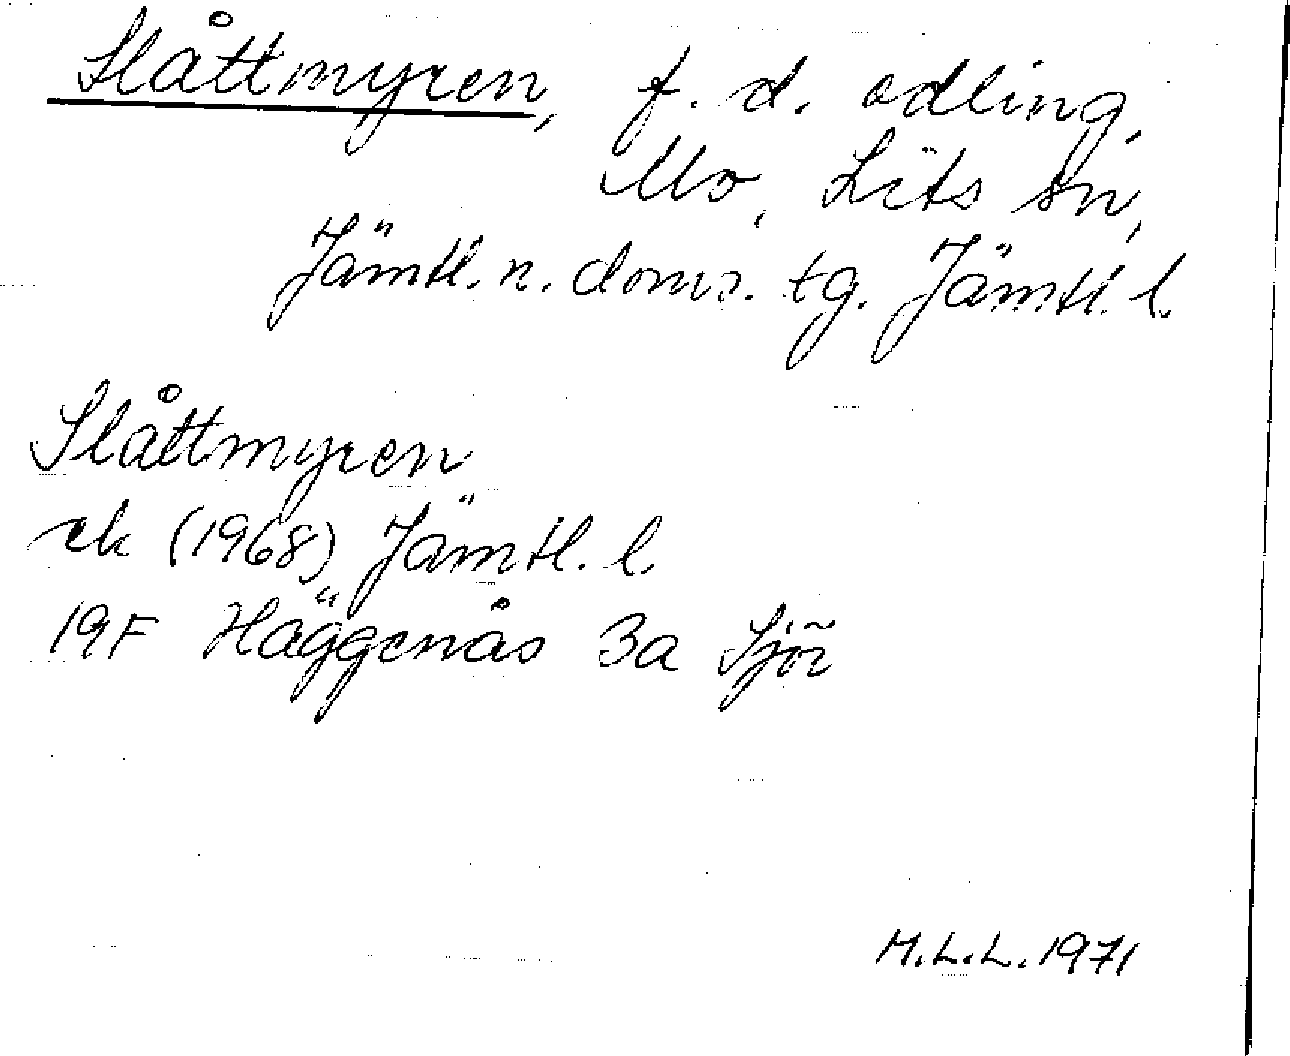 Slåttmyren, f. d. odling,
Mo, Lits sn,
Jämtl. n. doms. tg. Jämtl. l.
Slåttmyren
ek (1968) Jämtl. l.
19F Häggenås 3a Sjör
M.L.L. 1971